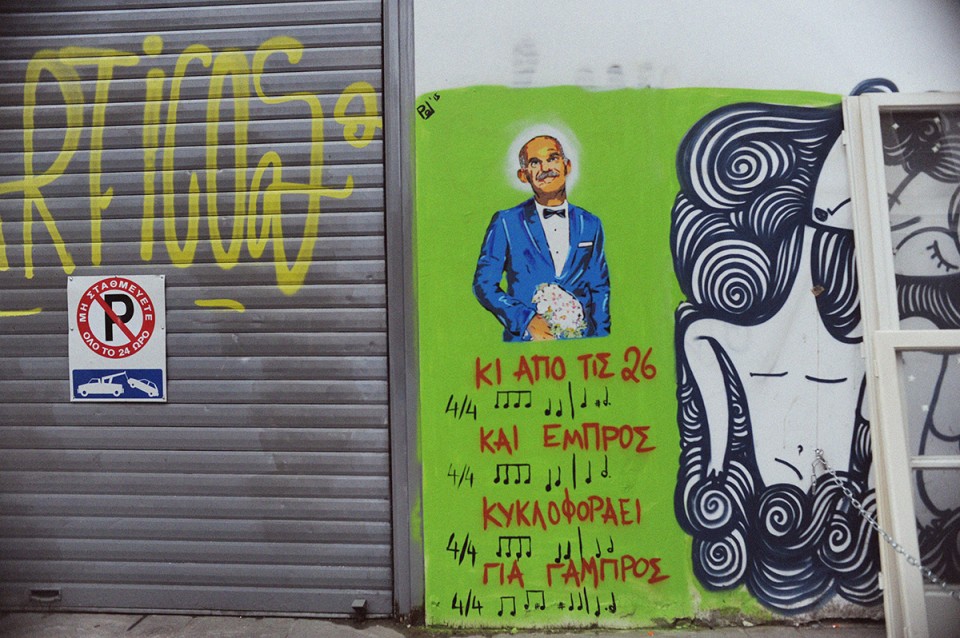 ΜΗ ΣΤΑΘΜΕΥΕΤΕ
P
ΟΛΟ ΤΟ 24 ΩΡΟ
ΚΙ ΑΠΟ ΤΙΣ 26
4/4
ΚΑΙ ΕΜΠΡΟΣ
4/4
ΚΥΚΛΟΦΟΡΑΕΙ
4/4
ΓΙΑ ΓΑΜΠΡΟΣ
4/4